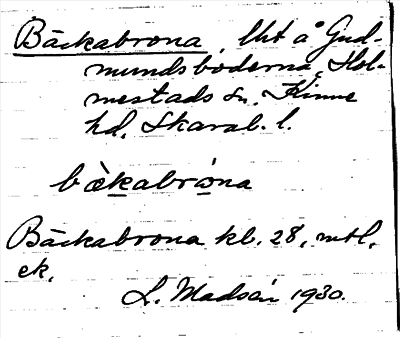 Bäckabrona, lht å Gud-
mundsboderna, Hol-
mestads sn, Kinne
hd, Skarab. l.
bækabrona
Bäckabrona kb. 28, mtl,
ek.
L. Madsén 1930.